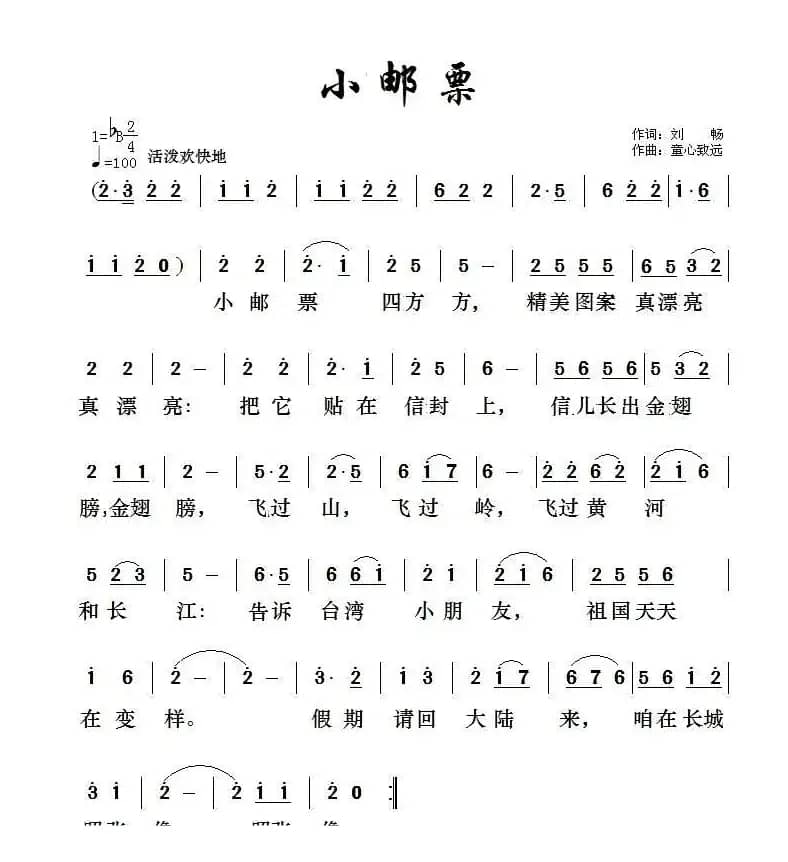 小邮票
1=♭B 2/4
作词：刘 畅
♩=100 活泼欢快地
作曲：童心致远
(2̇·3̇ 2̇2̇ | i i 2̇ | i i 2̇2̇ | 6 2 2 | 2·5 | 6 2̇2̇ | i·6 |
i i 2̇ 0) | 2̇ 2̇ | 2̇· i | 2̇ 5 | 5 － | 2 5 5 5 | 6 5 3 2 |
小 邮 票 四方 方， 精美图案 真漂亮
2 2 | 2 － | 2̇ 2̇ | 2̇· i | 2̇ 5 | 6 － | 5 6 5 6 | 5 3 2 |
真 漂 亮： 把它 贴在 信封 上， 信儿长出金翅
2 1 1 | 2 － | 5·2 | 2·5 | 6 i 7 | 6 － | 2̇ 2̇ 6 2̇ | 2̇ i 6 |
膀,金翅 膀， 飞过 山， 飞过 岭， 飞过黄 河
5 2 3 | 5 － | 6·5 | 6 6 i | 2̇ i | 2̇ i 6 | 2 5 5 6 |
和长 江： 告诉 台湾 小朋 友， 祖国天天
i 6 | 2̇ － | 2̇ － | 3̇· 2̇ | i 3̇ | 2̇ i 7 | 6 7 6 | 5 6 i 2̇ |
在变 样。 假期 请回 大陆 来， 咱在长城
3̇ i | 2̇ － | 2̇ i i | 2̇ 0 :‖